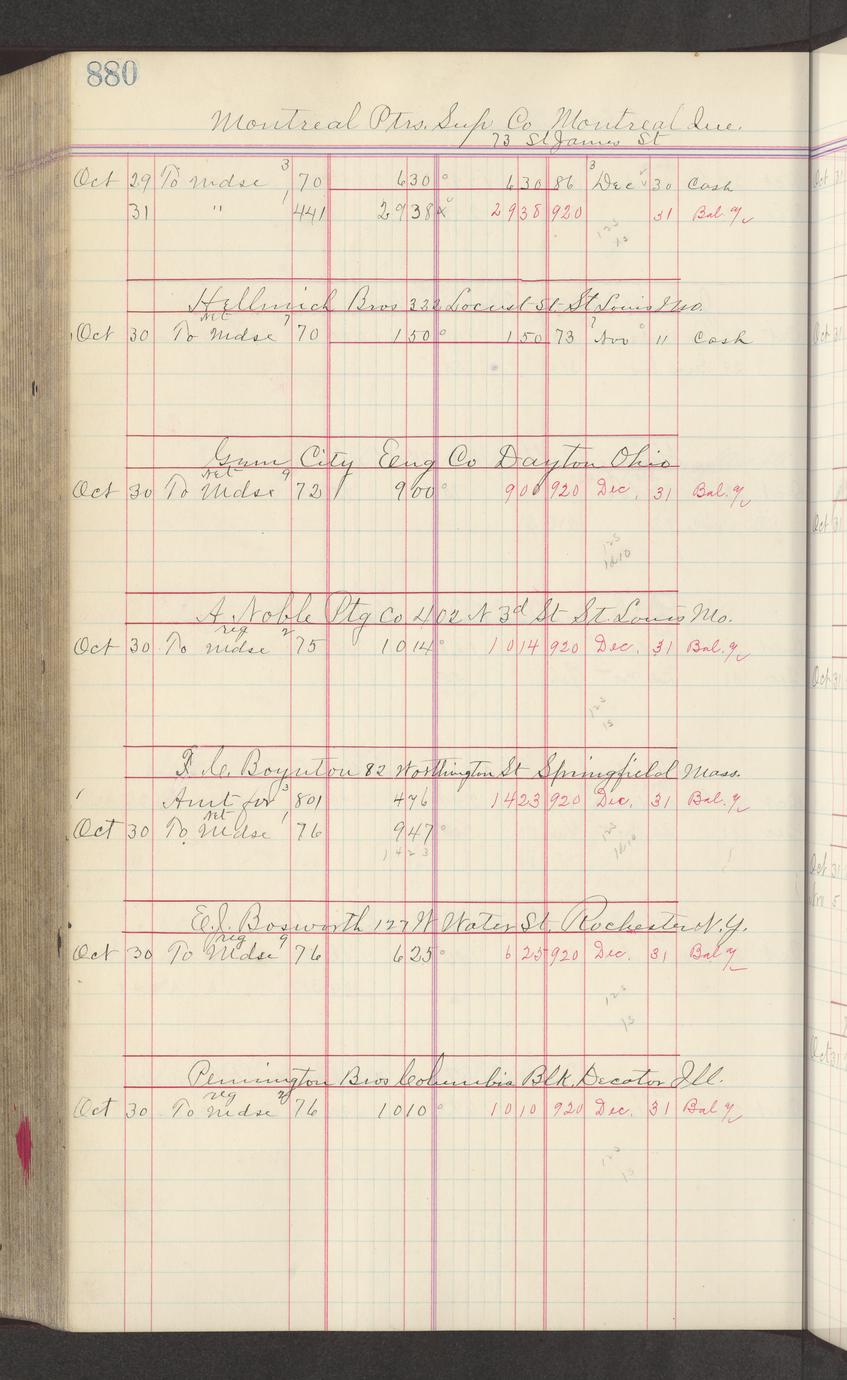 880
Montreal Ptrs. Sup Co Montreal Que.
73 St James St
Oct 29 To Mdse 3 70 630 630 86 3 Dec 30 Cash
31 " 1 441 2938 2938 920 31 Bal. a/c
123
15
Hellmich Bros 332 Locust St St Louis Mo.
net
Oct 30 To Mdse 7 70 150 150 73 7 Nov 11 Cash
Gem City Eng Co Dayton Ohio
net
Oct 30 To Mdse 9 72 900 900 920 Dec. 31 Bal. a/c
123
A. Noble Ptg Co 402 N 3d St St. Louis Mo.
reg
Oct 30 To Mdse 2 75 1014 1014 920 Dec. 31 Bal. a/c
123
15
F. C. Boynton 82 Worthington St Springfield Mass.
Amt for 3 801 476 1423 920 Dec. 31 Bal. a/c
net
Oct 30 To Mdse 1 76 947
1423
123
E. J. Bosworth 127 N Water St. Rochester N.Y.
reg
Oct 30 To Mdse 9 76 625 625 920 Dec. 31 Bal a/c
123
15
Pennington Bros Columbia Blk. Decator Ill.
reg
Oct 30 To Mdse 76 1010 1010 920 Dec. 31 Bal a/c
123
15